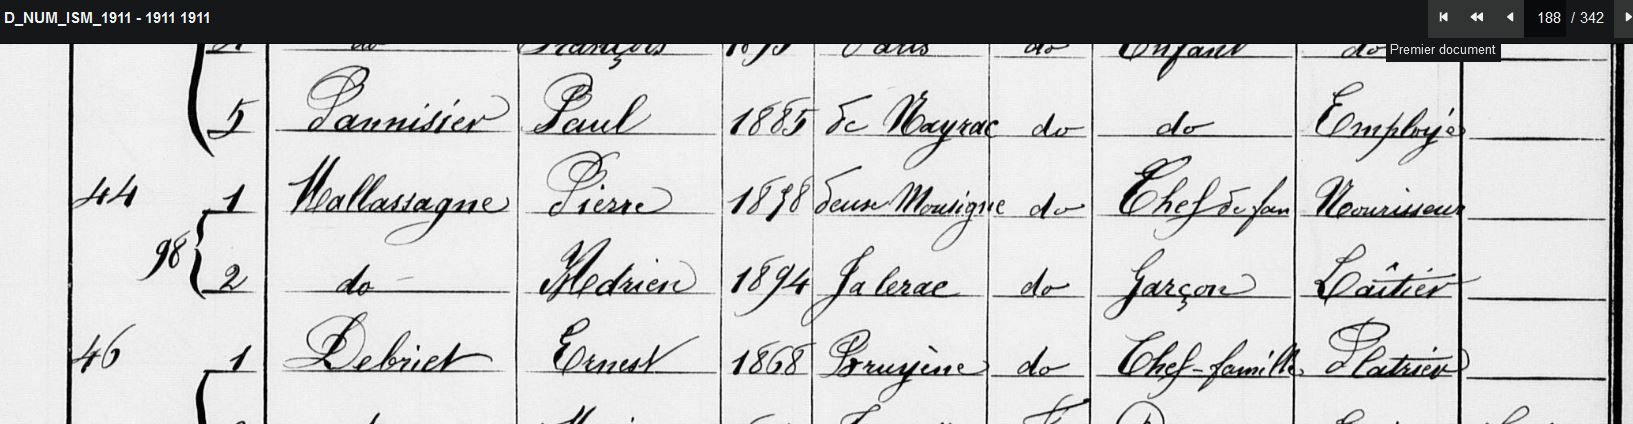 D_NUM_ISM_1911 - 1911 1911
188 / 342
Premier document
do François 1895 Paris do Enfant do
5 Pannisier Paul 1885 de Nayrac do do Employé
44 1 Mallassagne Pierre 1898 do Chef de fam Nourisseur
98 2 do Adrien 1894 Jalerac do Garçon Laîtier
46 1 Debriet Ernest 1868 Bruyène do Chef-famille Platrier